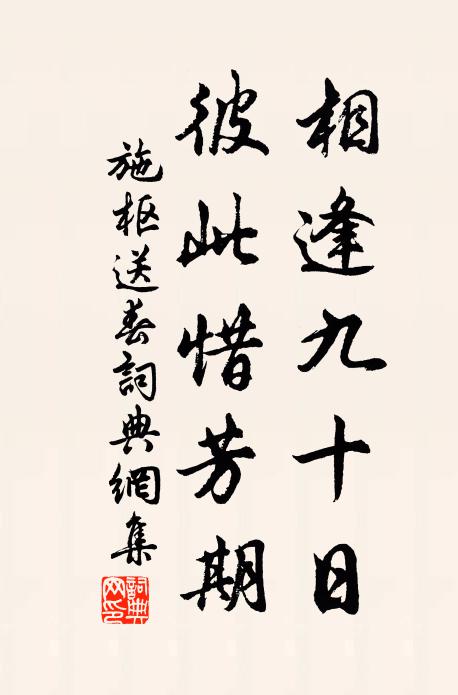 相逢九十日
彼此惜芳期
施枢送春詞典網集
詞典网印